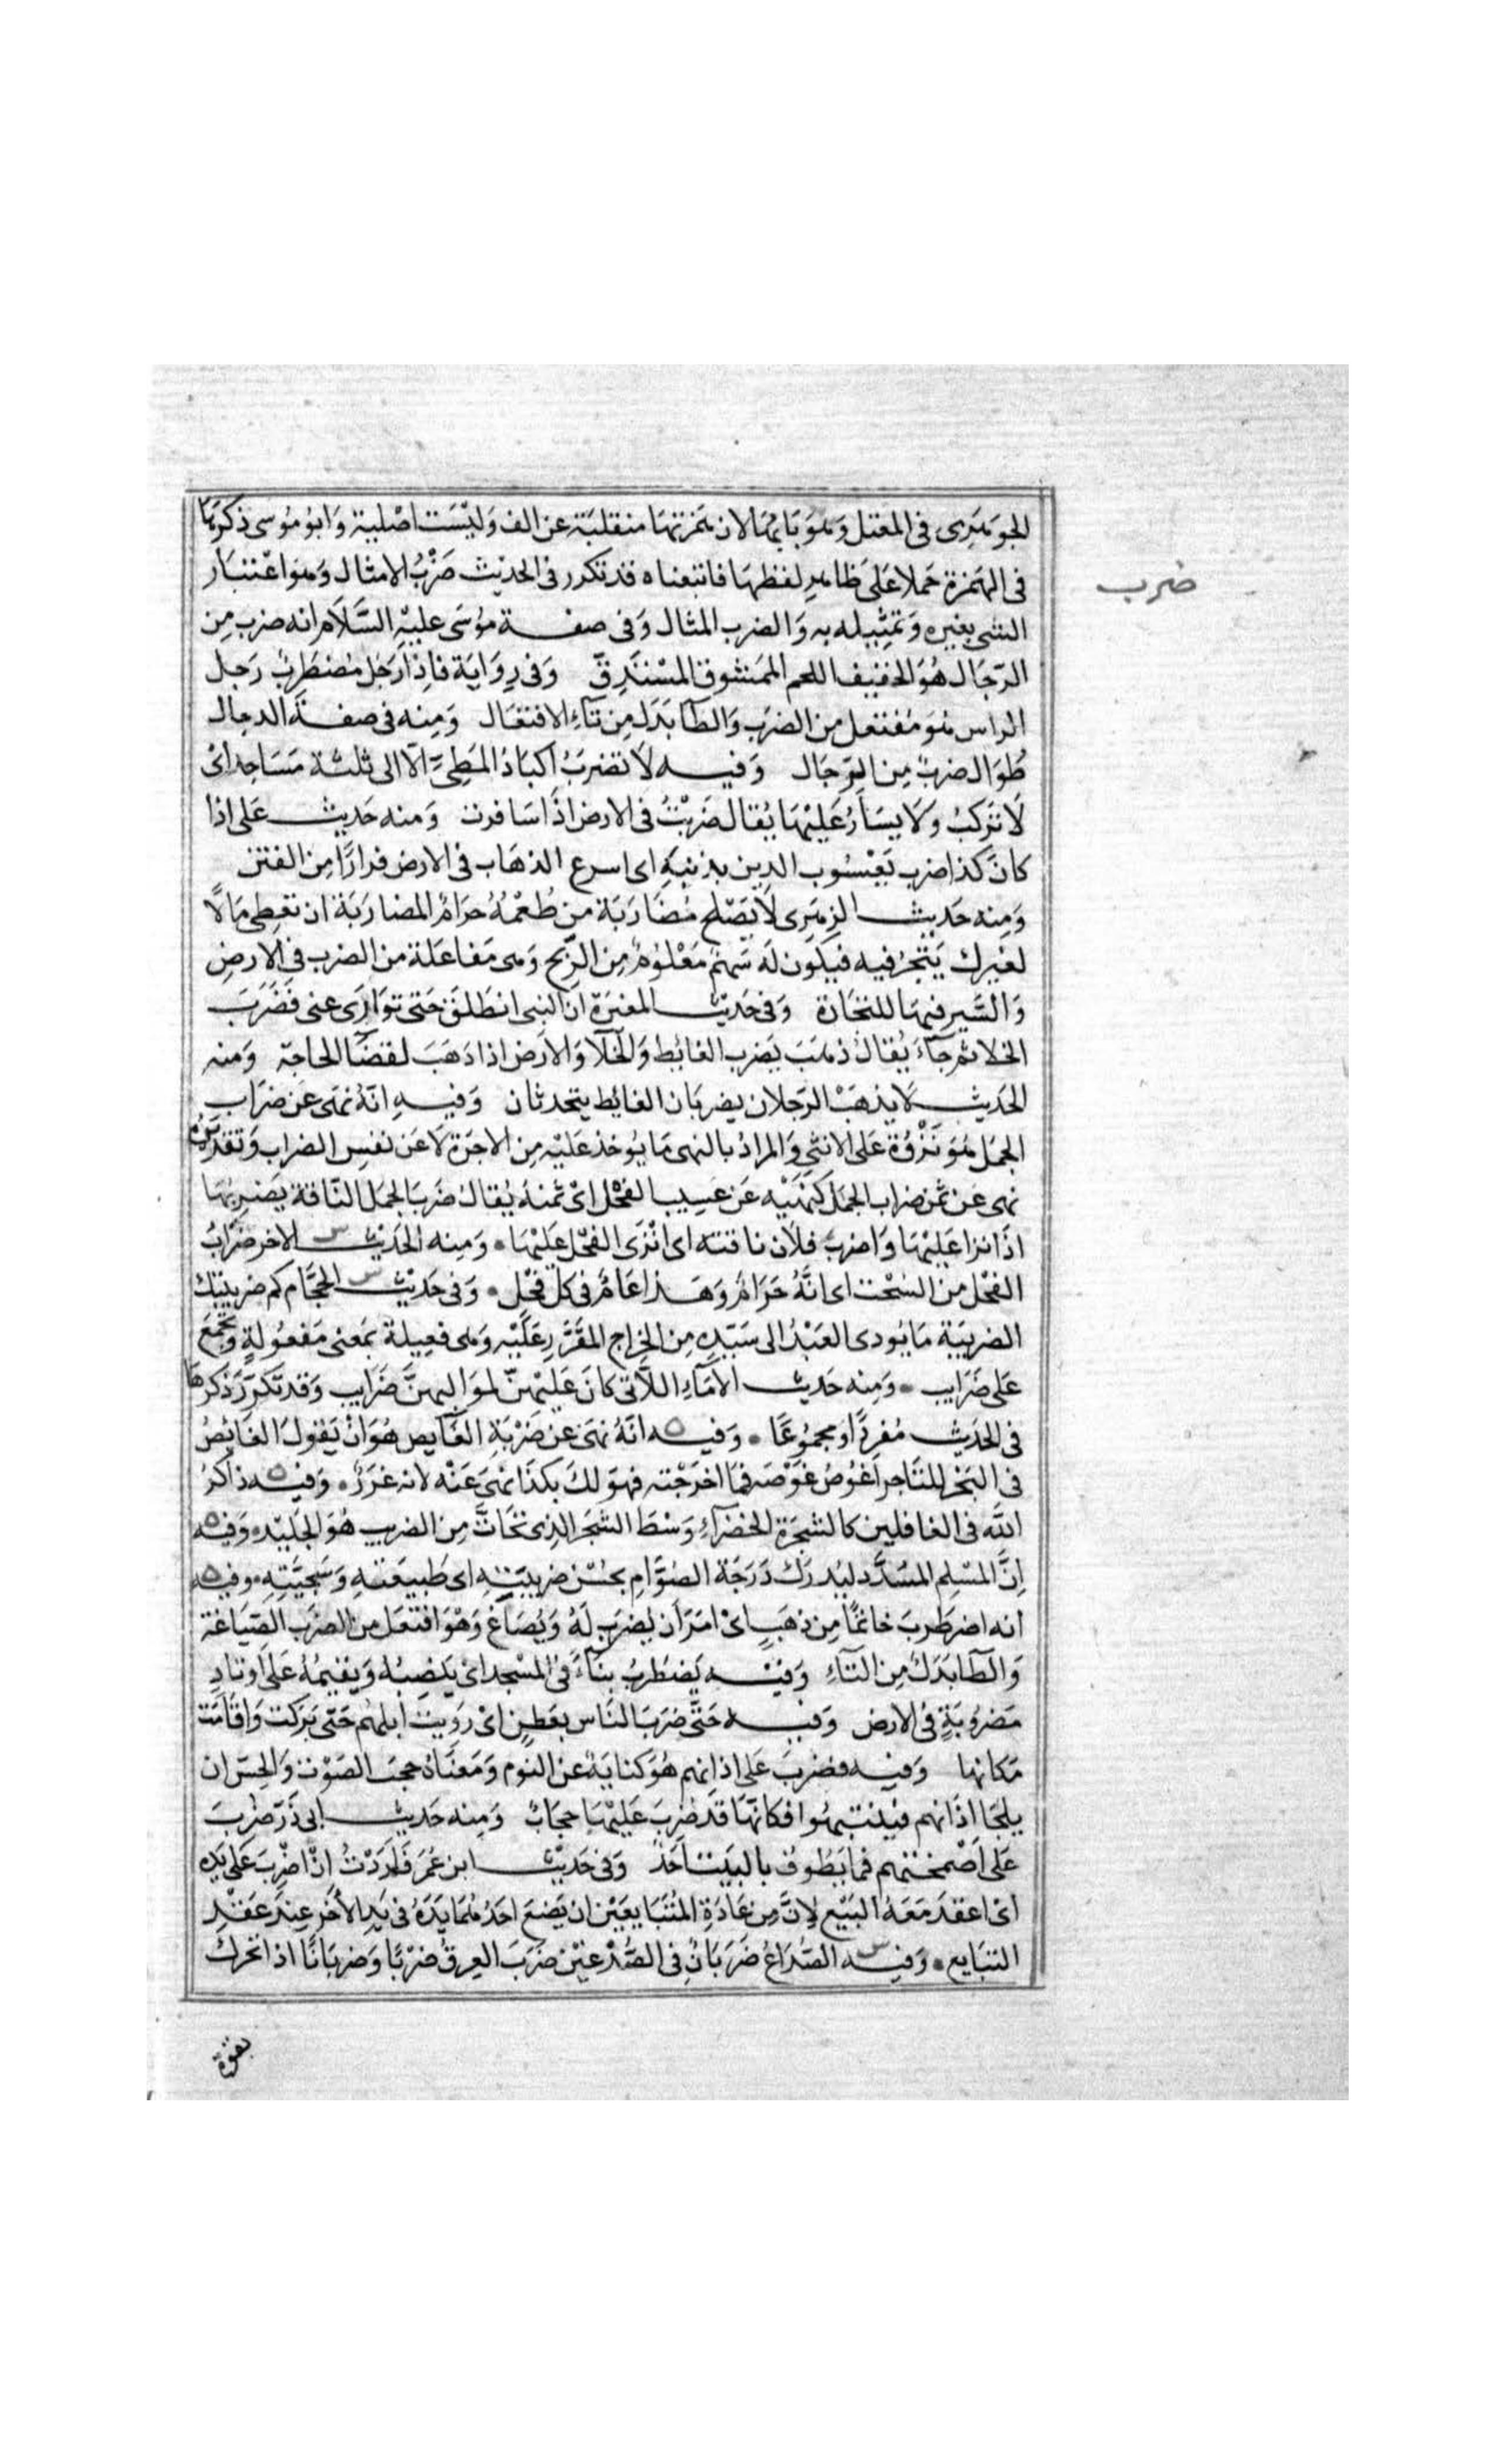 الجوهرى فى المعتل وهو بابها لان همزتها منقلبة عن الف وَليْسَت اصْلية وَابو مُوسى ذكرها
فى الهَمزة حَملا عَلىَ ظاهرِ لفظهَا فاتبعناه قد تكرر فى الحدِيْث ضَرْبُ الامثال وَهوَ اعْتبَار
ضرب
الشى بغيره وَتمثِيله به وَالضرب المثال وَفى صفة مُوسَى عليْهِ السَّلَام انه ضرب مِن
الرّجَال هُوَ الخفيف اللحم الممَشوق المسْتَدِقّ وَفى رِوَايَة فاِذَا رَجُل مُضطرِبُ رَجل
الراس هُوَ مُفتعل من الضرَب وَالطآ بَدَل مِن تآءِ الافتعَال وَمِنه فى صفة الدجال
طُوَال ضربٌ مِن الرِّجَال وَفيه لاَ تضرَبُ اكبَادُ المَطِىِّ الّا الى ثلثة مَسَاجد اىْ
لَا تَركبُ وَلَا يسَارُ عَليْهَا يُقال ضَرَبْتُ فى الارض اذَا سَافرت وَمنه حَديث عَلى اذا
كانَ كذا ضرب يَعْسُوب الدين بذنبِهِ اى اسرع الذهَاب فى الارض فرارًا مِن الفتن
وَمِنه حَديث الزهرِى لَا يَصْلح مُضَارَبَة من طُعْمُهُ حرَامٌ المضاربَة ان تعْطِى مَالًا
لغيرك يَتّجرُ فيه فيكون لَه سَهمٌ مَعْلُومٌ مِن الرِّبح وَهى مَفاعَلة من الضرب فى الارضِ
وَالسَّيرِ فيهَا للتجَارة وَفى حَديث المغيرَة ان النبى انطَلقَ حَتى توَارَى عنى فضَرَبَ
الخلا ثم جَآءَ يُقالُ ذهَبَ يَضرب الغائِط وَالخلآ وَالارَض اذا ذهَبَ لقضآ الحاجة وَمنه
الحَديث لَا يذهَبْ الرّجلان يضربَان الغايط يتحدثان وَفيهِ انّهُ نهَى عَن ضرَاب
الجمَل هُوَ نَزْوُهُ عَلى الانثى وَالمرادُ بالنهى مَا يوخذ عَليْه مِن الاجرَة لَا عَن نفس الضراب وَتقديرهُ
نهى عَن ثمَن ضراب الجمَل كنهْيْه عَن عَسِيب الفحْل اىْ ثمنه يُقالُ ضَربَ الجمَل النّاقة يَضربُهَا
اذَا نزا عَليْهَا وَاضرَبَ فلاَن ناقته اى انْزَى الفحْل عَليْهَا وَمِنه الحَديث س الاخر ضرَابُ
الفحْل من السُّحت اى انَّهُ حَرَامٌ وَهَذا عَامٌّ فى كلّ فحْل وَفى حَديث س الحجَّام كم ضريبتك
الضريبَة مَا يُودى العَبْدُ الى سَيّدِهِ مِن الخراج المقَرّر عَلَيْه وَهى فعِيلة بمَعنى مَفعُولةٍ وَتجمَعُ
عَلى ضَرَايب وَمِنه حَديث الامَآءِ اللَّاتى كانَ عَليْهنّ لموَاليهنَّ ضَرَايب وَقد تكرّرَ ذكرهَا
فى الحَدِيث مُفردًا وَمجمُوعًا وَفيه انّهُ نهَى عَن ضَرْبَةِ الغَآيص هُوَ انْ يَقولَ الغَائِصُ
فى البَحْر للتّاجر اغُوصُ غوْصَه فمَا اخرَجْته فهوَ لكَ بكذَا نهىَ عَنْه لانه غرَرٌ وَفيه ذاكرُ
اللَّه فى الغافلين كالشجَرَة الخضرَآءِ وَسْط الشجَر الذى تحَاتَّ مِن الضريب هُوَ الجَليْد وَفيه
اِنَّ المسْلِم المُسَدَّد ليُدركُ دَرَجَة الصُوَّامِ بحُسْن ضريبَتهِ اى طَبيعَتهِ وَسَجيَّتهِ وَفيه
انه اضطرَبَ خاتمًا مِن ذهَبٍ اىْ امَرَ أن يُضرَب لهُ وَيُصَاغ وَهْوَ افتعَل من الضرَب الصّيَاغة
وَالطآ بَدَلٌ مِن التآءِ وَفيه يَضطرِبُ بنَآءً فى المسْجد اىْ يَنصِبُه وَيُقيمُهُ عَلى اوتادٍ
مَضرُوبَةٍ فى الارض وَفيه حَتَّى ضرَبَ النَّاس بعَطِن اىْ رَوِيَت ابلهُم حَتّى بَرَكت وَاقَامَت
مَكانها وَفيه فضربَ عَلى اذانِهم هُوَ كنَايَةٌ عَن النوْم وَمَعنَاهُ حجبَ الصَوْت وَالحِسّ ان
يلجَا اذَانهم فينتبهُوا فكانّهَا قد ضُربَ عَليْهَا حِجَابٌ وَمِنه حَديث ابى ذرّ ضُرِبَ
عَلى اَصْمختهم فمَا يَطوفُ بالبَيْت اَحَدٌ وَفى حَديث ابن عُمَر فَارَدْتُ انْ اضْرِبَ عَلى يَدِهِ
اىْ اعقد مَعَهُ البَيْع لِانَّ مِن عَادَةِ المُتبَايعَيْن ان يَضعَ احَدُهُمَا يَدَهُ فى يَدِ الآخَر عِنْدَ عَقْدِ
التبَايع وَفيه س الصُّدَاعُ ضَرَبَانٌ فى الصُّدْغيْن ضَرَبَ العِرقُ ضرْبًا وَضربَانًا اذا تحَركَ
بقوة